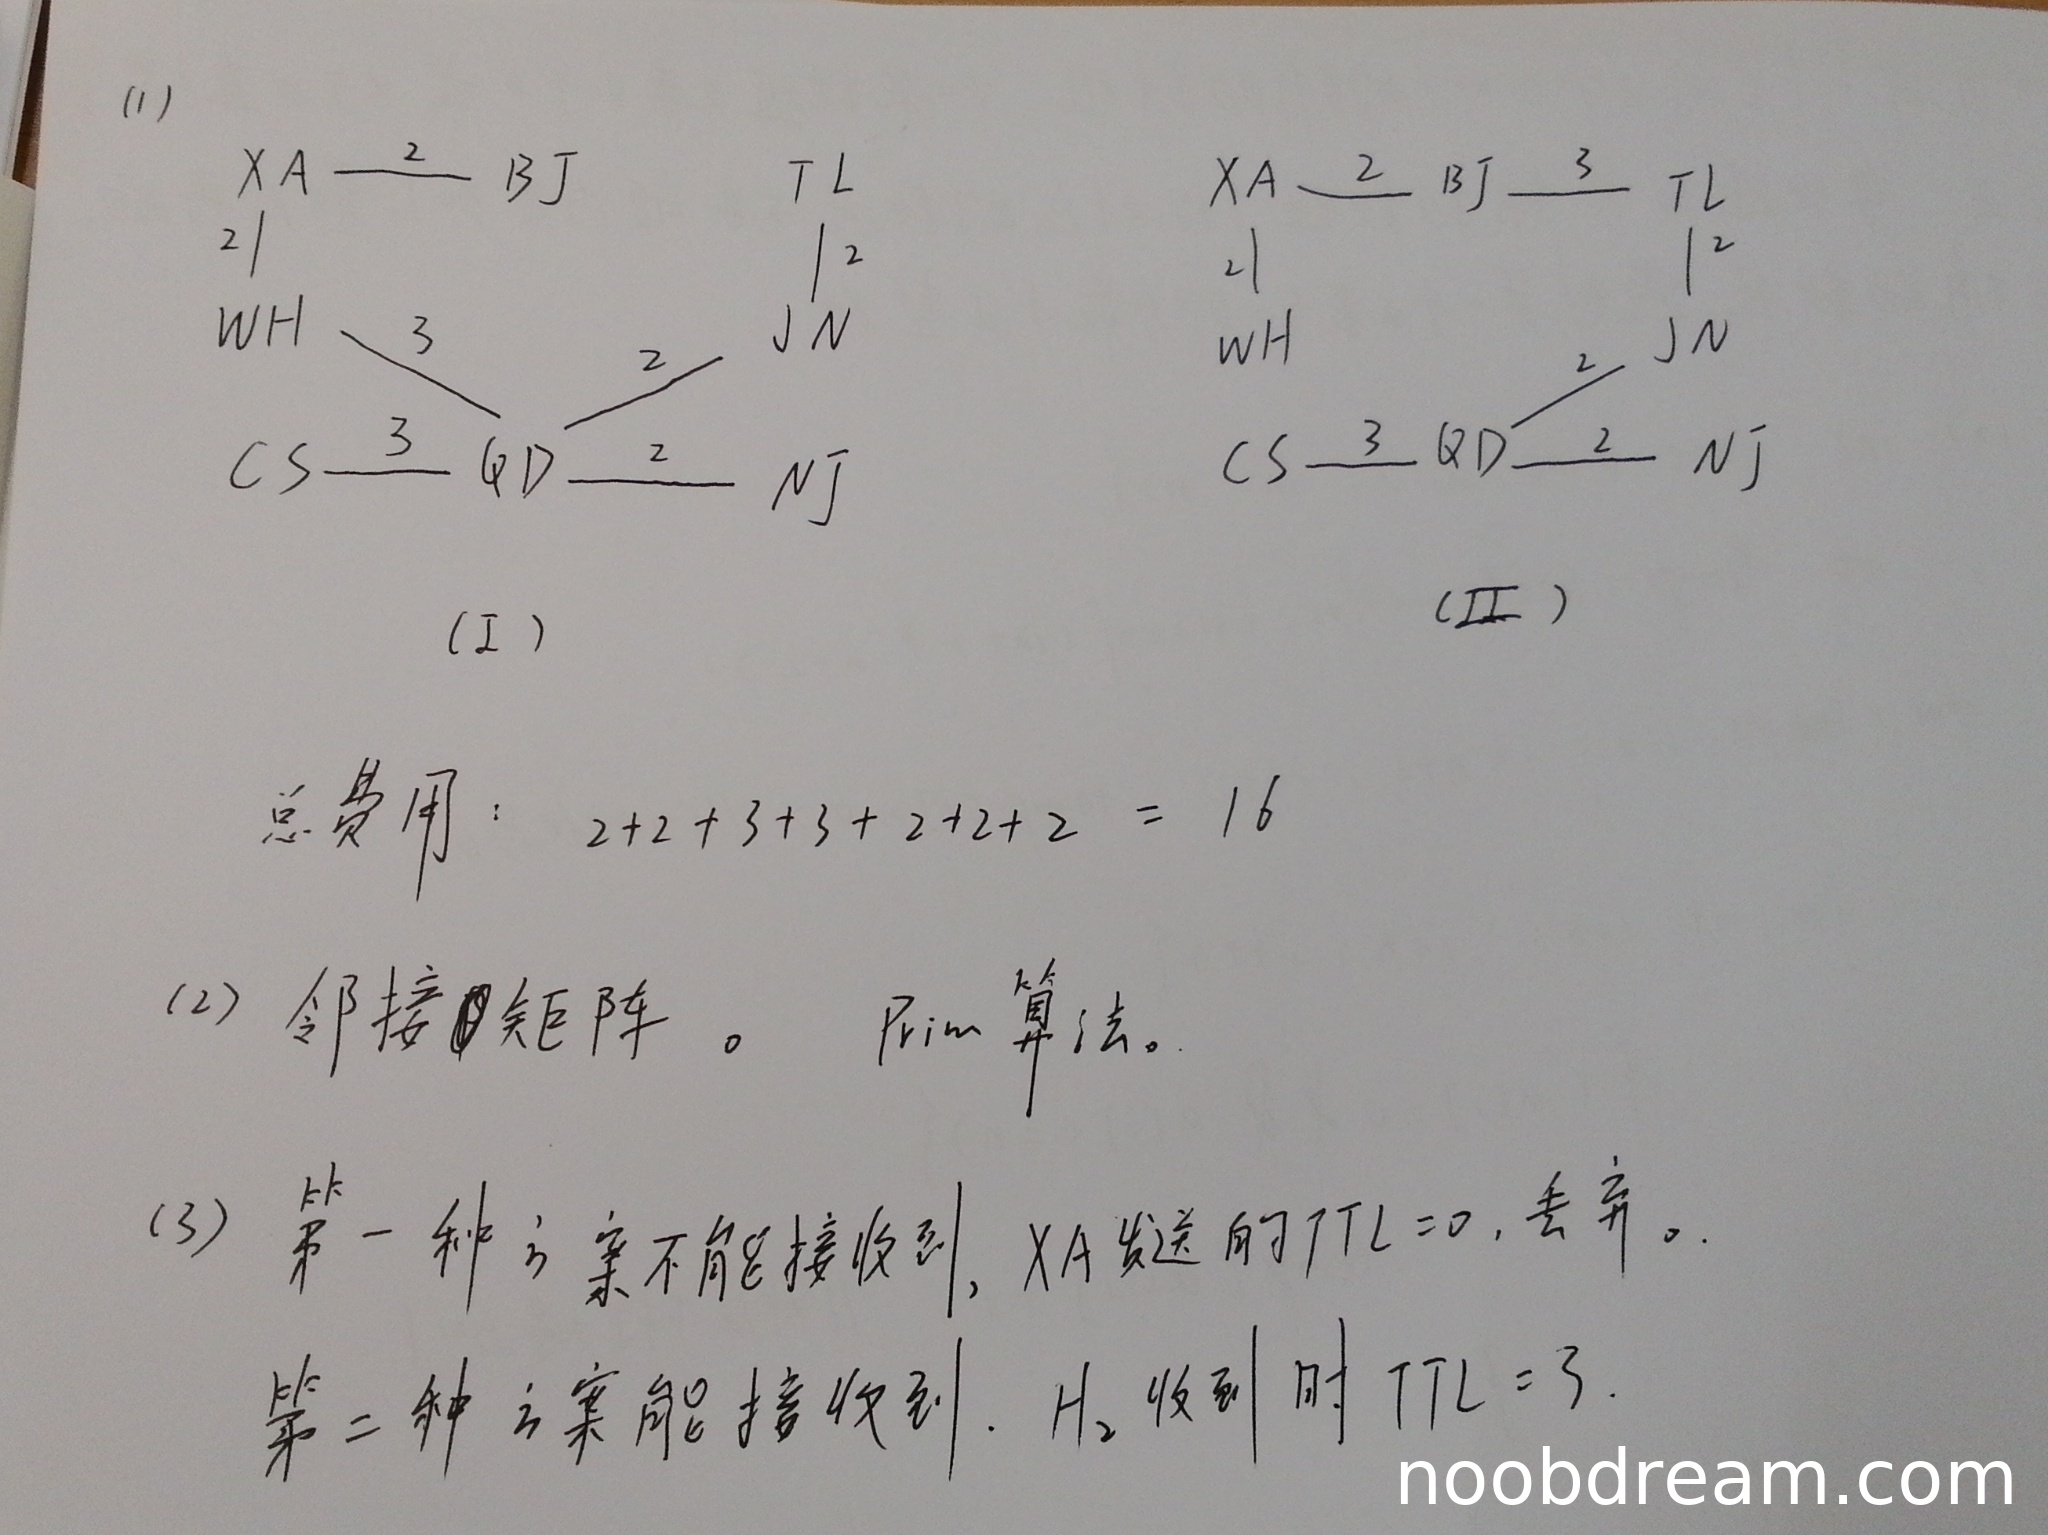 (1)
XA 2 BJ TL
2 2
WH 3 2 JN
CS 3 QD 2 NJ
(I)
XA 2 BJ 3 TL
2 2
WH 2 JN
CS 3 QD 2 NJ
(II)
总费用: 2+2+3+3+2+2+2 = 16
(2) 邻接矩阵。 Prim算法。
(3) 第一种方案不能接收到, XA发送的TTL=0, 丢弃。
第二种方案能接收到. H₂收到时TTL=3.
noobdream.com